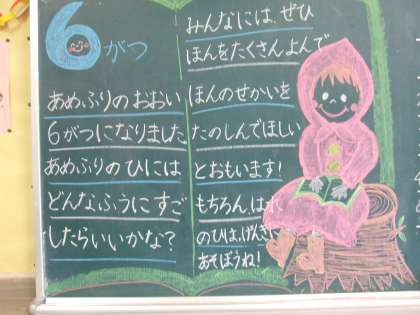 6がつ
あめふりのおおい
6がつになりました
あめふりのひには
どんなふうにすご
したらいいかな?
みんなには、ぜひ
ほんをたくさんよんで
ほんのせかいを
たのしんでほしい
とおもいます!
もちろん、はれ
のひは、げんきに
あそぼうね!